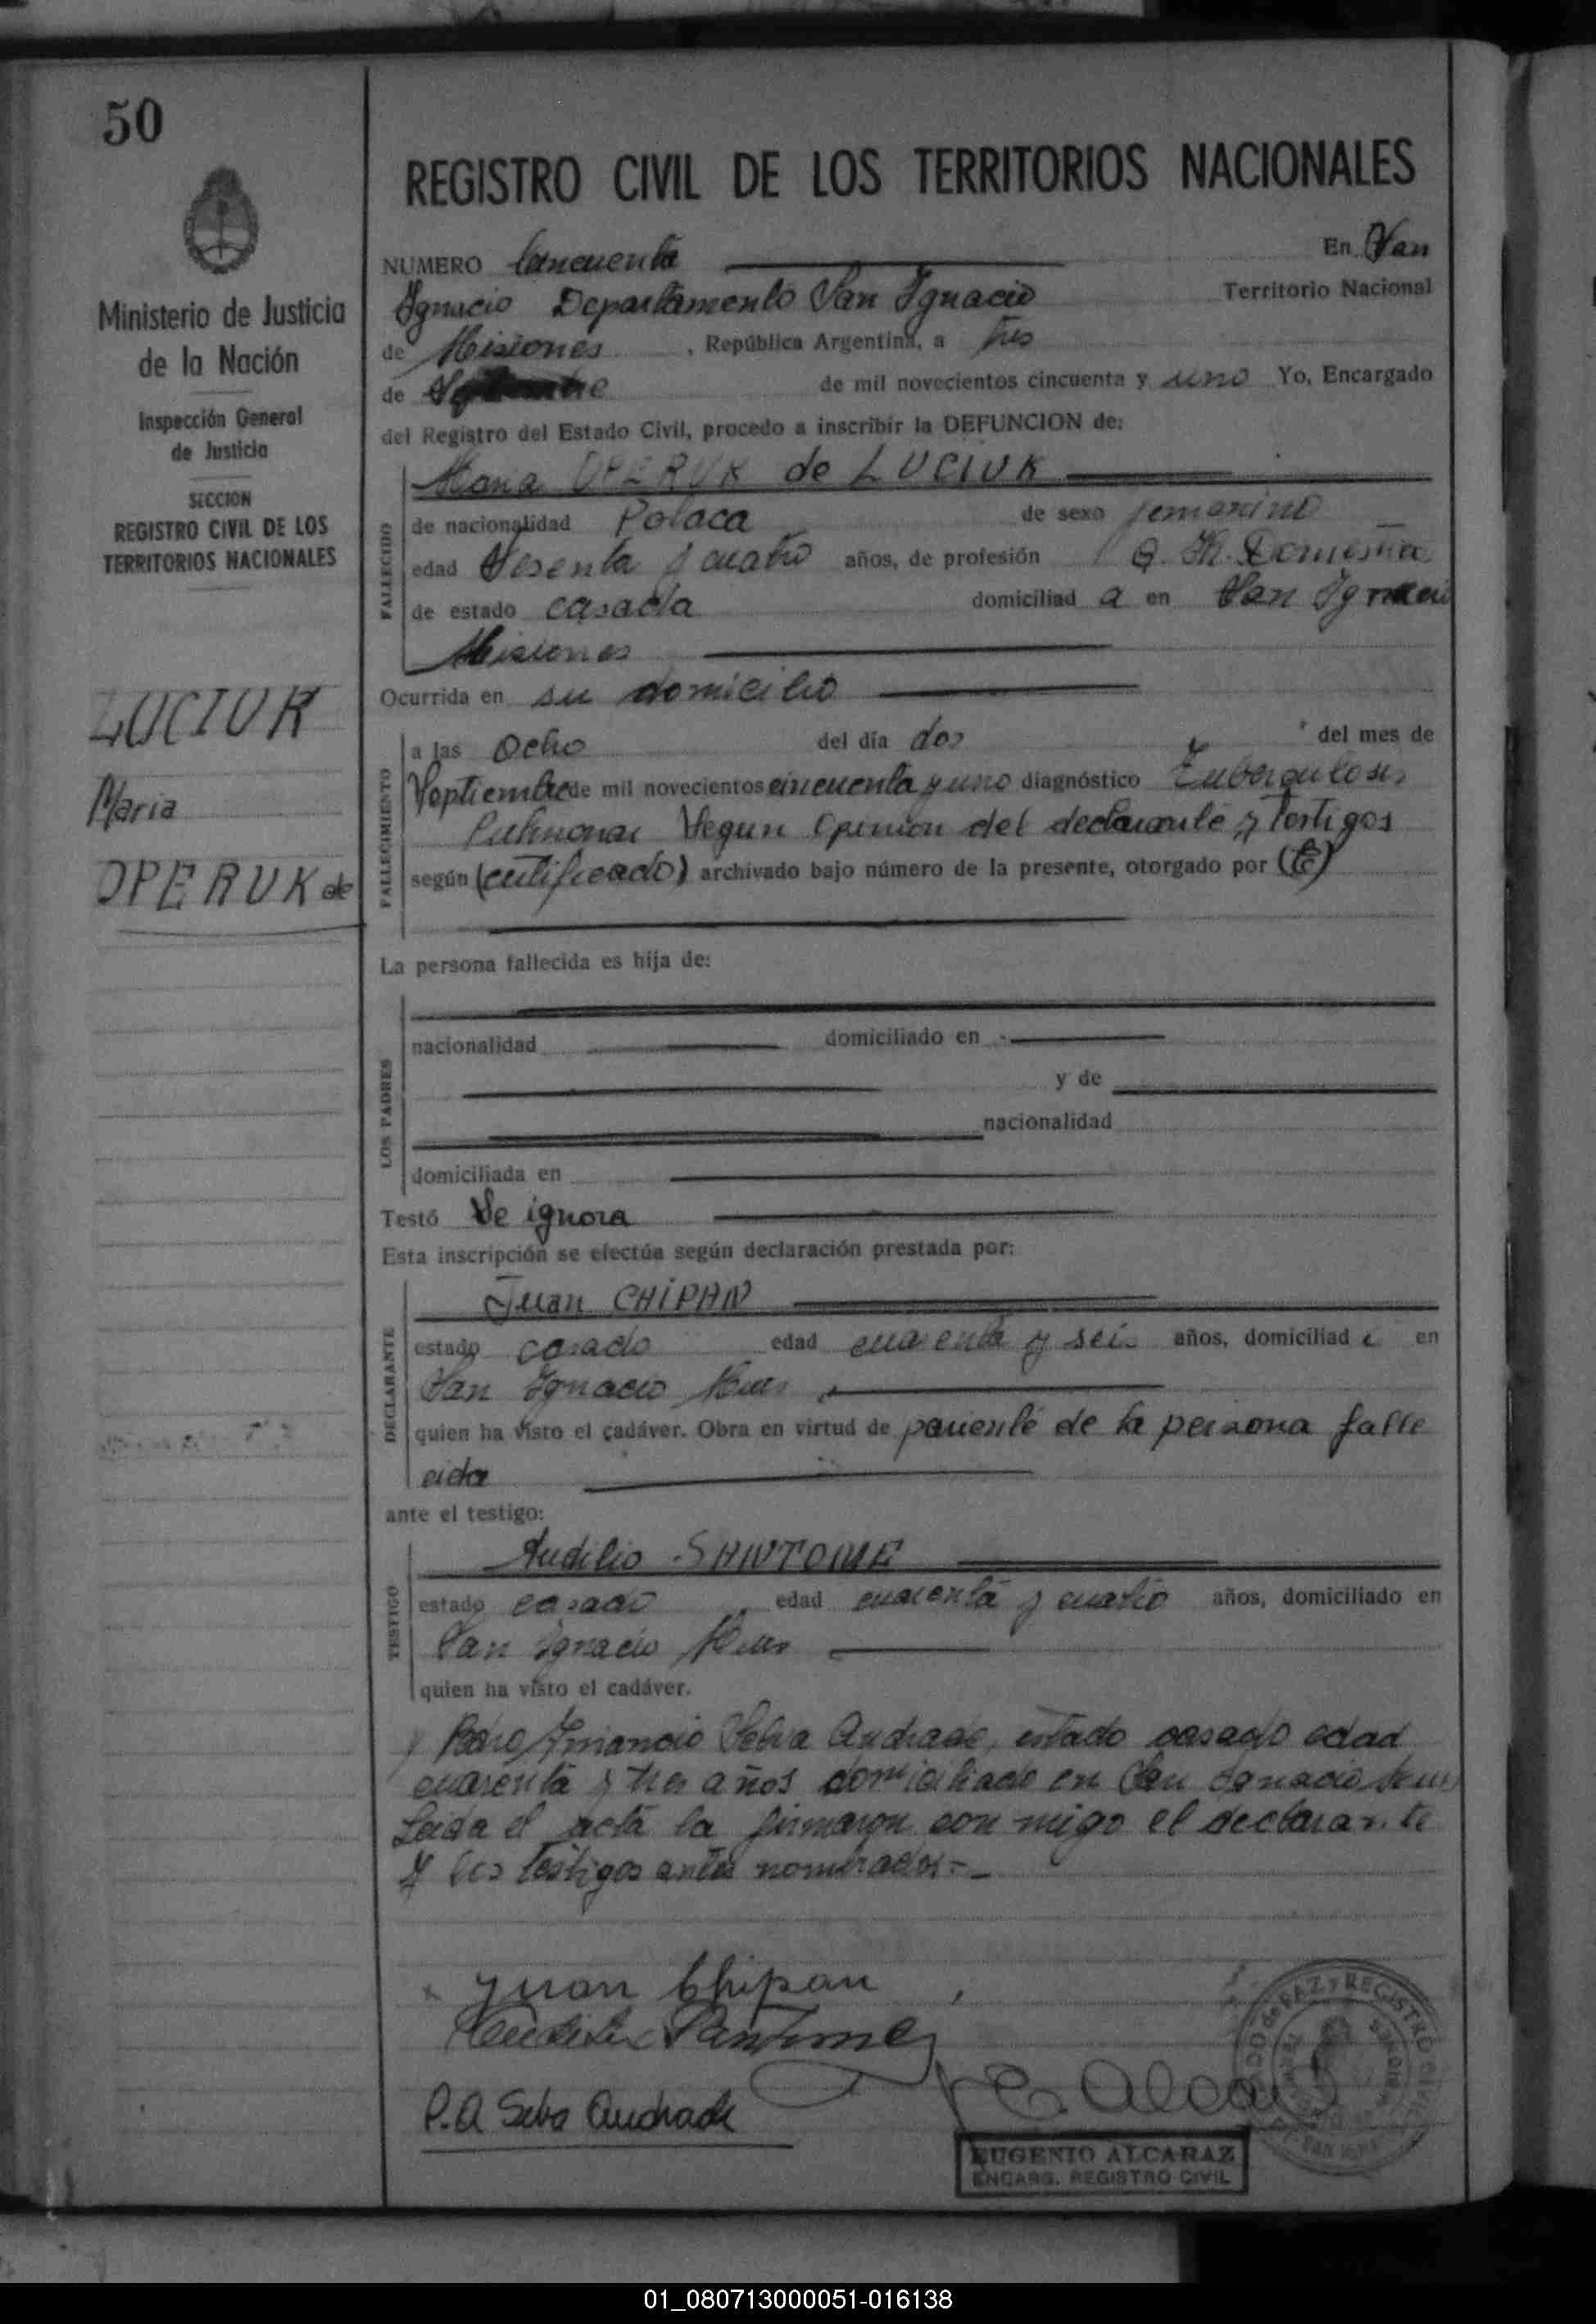 50
Ministerio de Justicia
de la Nación
Inspección General
de Justicia
SECCION
REGISTRO CIVIL DE LOS
TERRITORIOS NACIONALES
LUCIUK
Maria
OPERUK de
REGISTRO CIVIL DE LOS TERRITORIOS NACIONALES
NUMERO Cincuenta En San
Ignacio Departamento San Ignacio Territorio Nacional
de Misiones , República Argentina, a tres
de Septiembre de mil novecientos cincuenta y uno Yo, Encargado
del Registro del Estado Civil, procedo a inscribir la DEFUNCION de:
Maria OPERUK de LUCIUK
FALLECIDO
de nacionalidad Polaca de sexo femenino
edad Sesenta y cuatro años, de profesión Q. H. Domestica
de estado casada domiciliad a en San Ignacio
Misiones
Ocurrida en su domicilio
FALLECIMIENTO
a las Ocho del día dos del mes de
Septiembre de mil novecientos cincuenta y uno diagnóstico Tuberculosis
Pulmonar Segun Opinion del declarante y testigos
según (certificado) archivado bajo número de la presente, otorgado por
La persona fallecida es hija de:
LOS PADRES
nacionalidad domiciliado en
y de
nacionalidad
domiciliada en
Testó Se ignora
Esta inscripción se efectúa según declaración prestada por:
DECLARANTE
Juan CHIPAN
estado casado edad cuarenta y seis años, domiciliad o en
San Ignacio Mnes
quien ha visto el cadáver. Obra en virtud de pariente de la persona falle
cida
ante el testigo:
TESTIGO
Audilio SANTOME
estado casado edad cuarenta y cuatro años, domiciliado en
San Ignacio Mnes
quien ha visto el cadáver.
y Pedro Amancio Selva Andrade, estado casado edad
cuarenta y tres años domiciliado en San Ignacio Mnes
Leida el acta la firmaron con migo el declarante
y los testigos antes nombrados=-
Juan Chipan
Audilio Santome
P.A Selva Andrade
E. Alcaraz
EUGENIO ALCARAZ
ENCARG. REGISTRO CIVIL
JUZGADO de PAZ y REGISTRO CIVIL
01_080713000051-016138